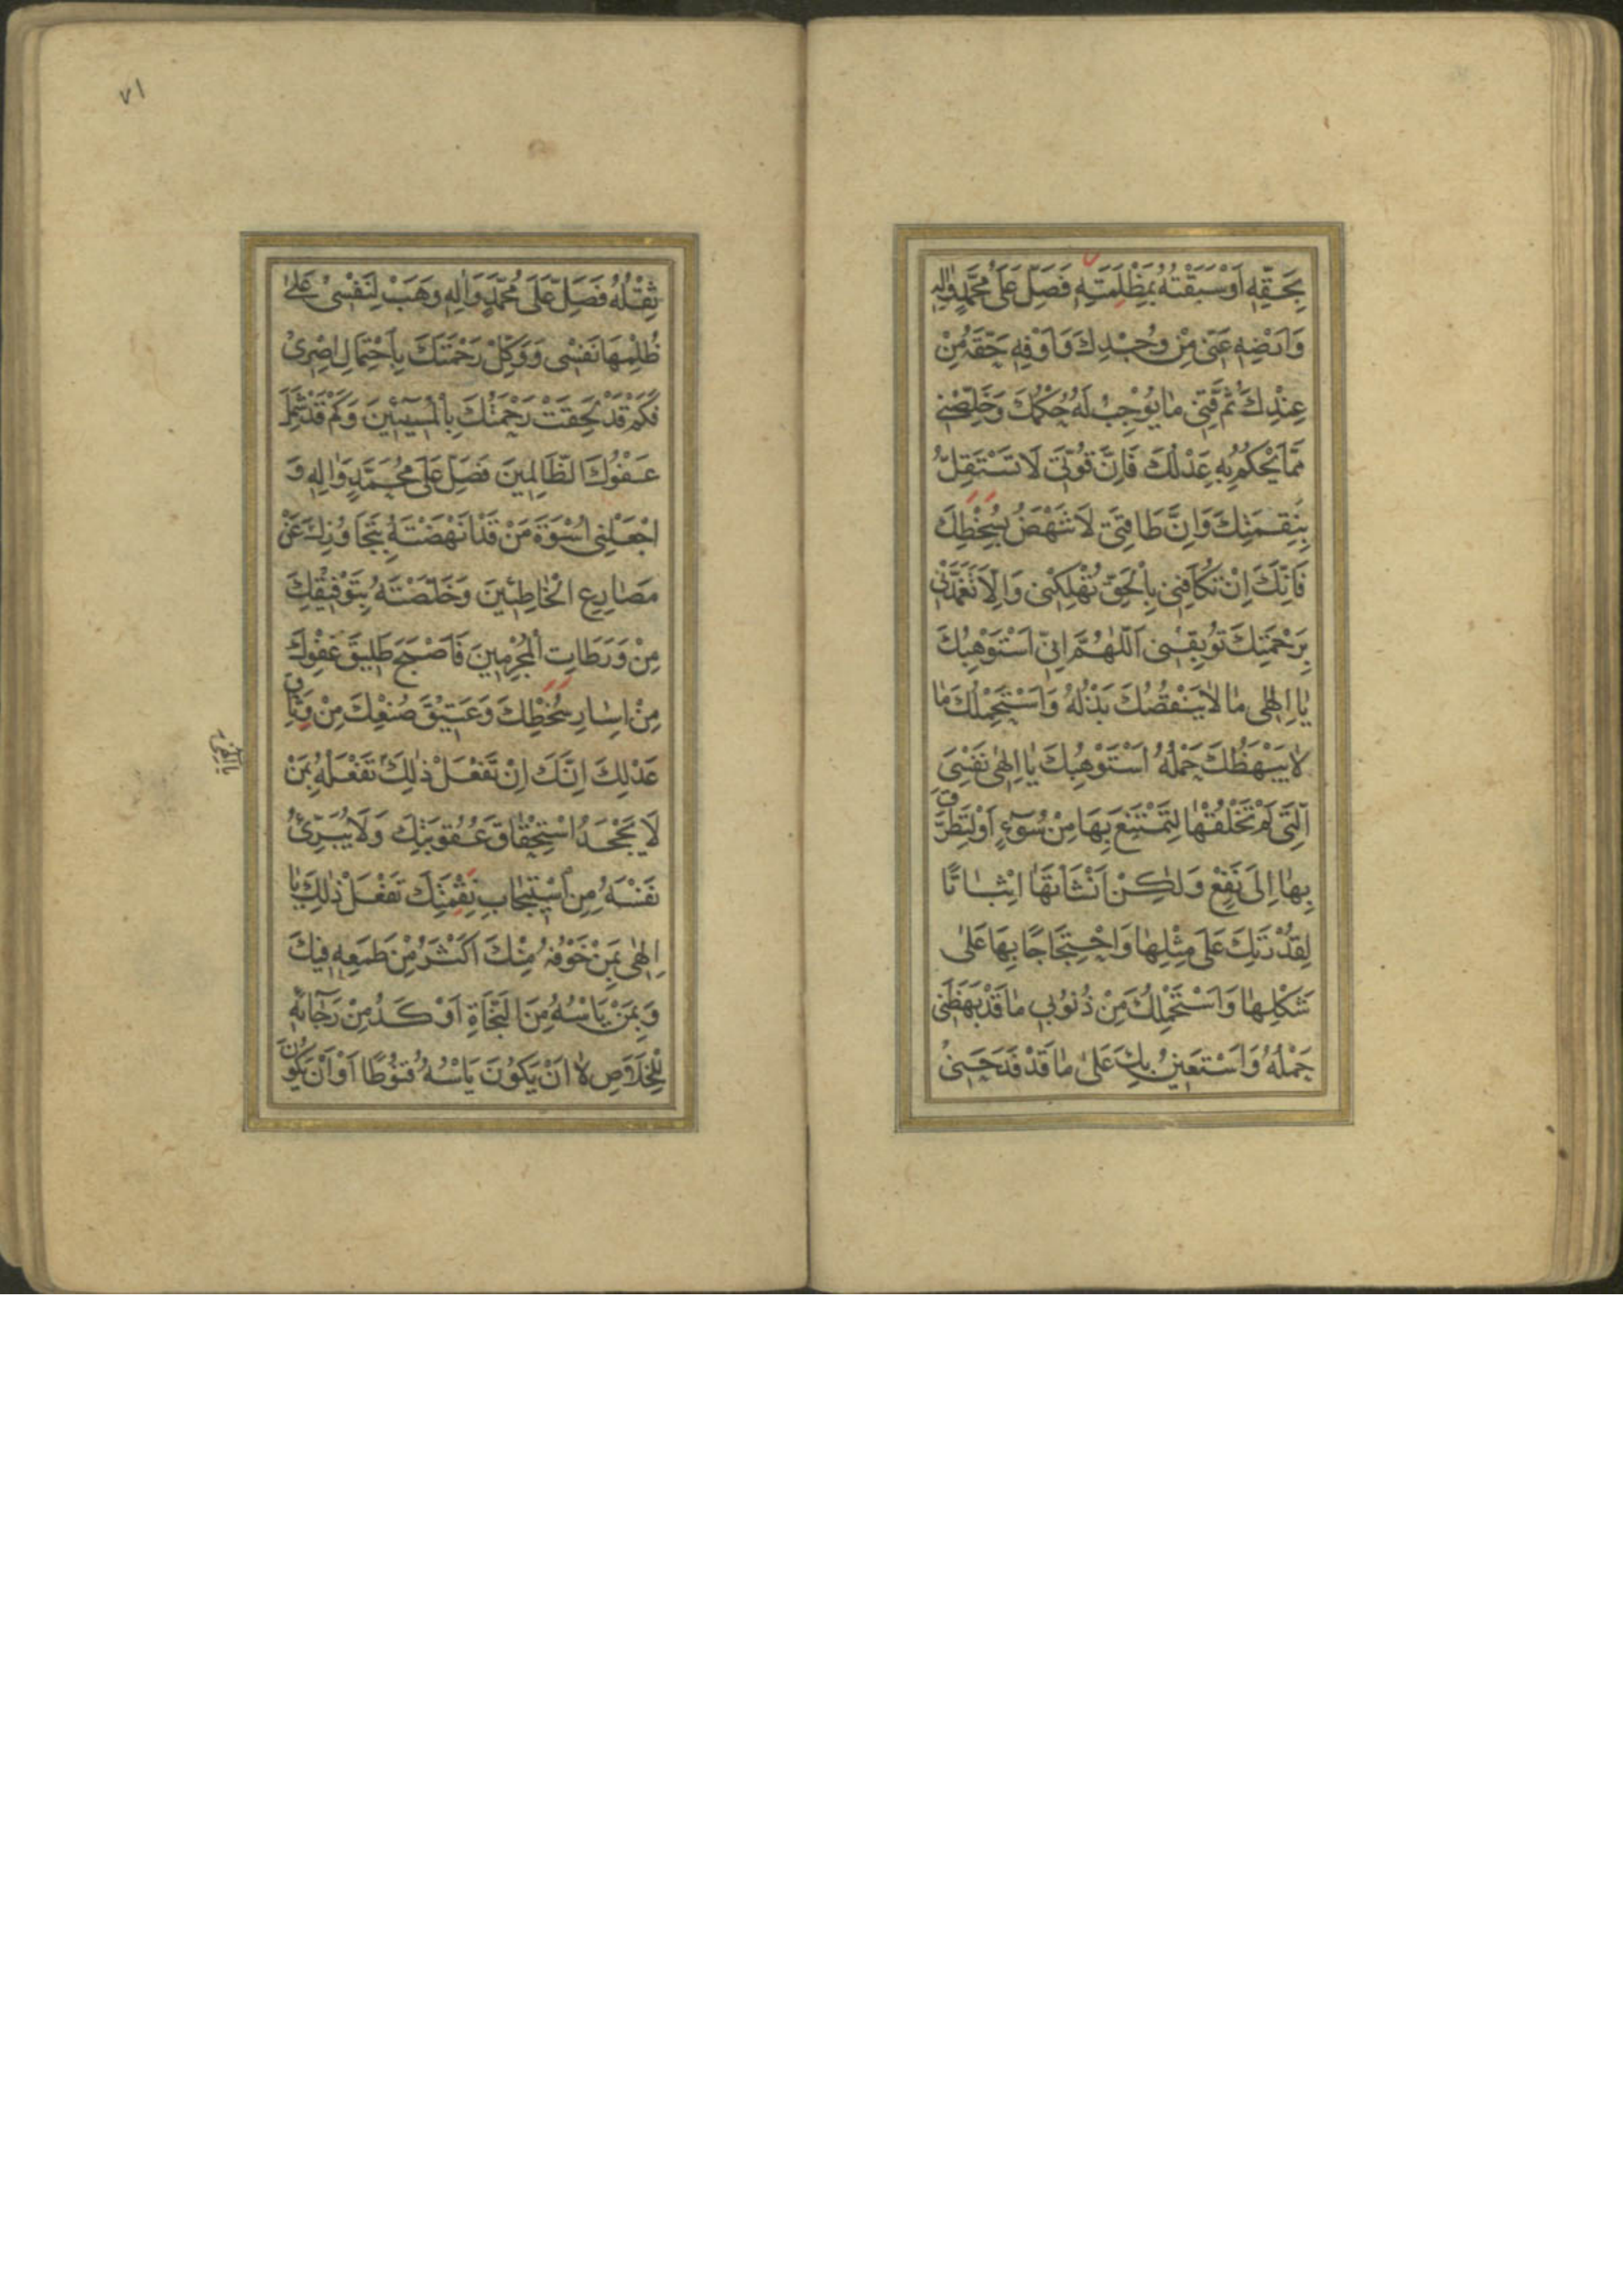 بِحَقِّهِ اَوْ سَبَقْتُهُ بِمَظْلِمَتِهِ فَصَلِّ عَلَى مُحَمَّدٍ وَاٰلِهِ
وَاَرْضِهِ عَنِّى مِنْ وُجْدِكَ وَاَوْفِهِ حَقَّهُ مِنْ
عِنْدِكَ ثُمَّ قِنِى مٰا يُوْجِبُ لَهُ حُكْمُكَ وَخَلِّصْنِى
مِمَّا يَحْكُمُ بِهِ عَدْلُكَ فَاِنَّ قُوَّتِى لَا تَسْتَقِلُّ
بِنِقِمَتِكَ وَاِنَّ طَاقَتِى لَا تَنْهَضُ بِسُخْطِكَ
فَاِنَّكَ اِنْ تُكَافِنِى بِالْحَقِّ تُهْلِكْنِى وَاِلَّا تَغَمَّدْنِى
بِرَحْمَتِكَ تُوبِقْنِى اَللّٰهُمَّ اِنِّى اَسْتَوْهِبُكَ
يٰا اِلٰهِى مٰا لٰا يَنْقُصُكَ بَذْلُهُ وَاَسْتَحْمِلُكَ مٰا
لٰا يَبْهَظُكَ حَمْلُهُ اَسْتَوْهِبُكَ يٰا اِلٰهِى نَفْسِىَ
الَّتِى لَمْ تَخْلُقْهٰا لِتَمْتَنِعَ بِهَا مِنْ سُوۤءٍ اَوْ لِتَطَرَّقَ
بِهٰا اِلَى نَفْعٍ وَلٰكِنْ اَنْشَاْتَهَا اِثْبٰاتًا
لِقُدْرَتِكَ عَلَى مِثْلِهٰا وَاحْتِجَاجًا بِهَا عَلٰى
شَكْلِهٰا وَاَسْتَحْمِلُكَ مِنْ ذُنُوبِى مٰا قَدْ بَهَظَنِى
حَمْلُهُ وَاَسْتَعِينُ بِكَ عَلٰى مٰا قَدْ فَدَحَنِىْ
٧١
ثِقْلُهُ فَصَلِّ عَلَى مُحَمَّدٍ وَاٰلِهِ وَهَبْ لِنَفْسِىْ عَلٰى
ظُلْمِهَا نَفْسِى وَوَكِّلْ رَحْمَتَكَ بِاحْتِمَالِ اِصْرِىْ
فَكَمْ قَدْ لَحِقَتْ رَحْمَتُكَ بِالْمُسِيۤئِيْنَ وَكَمْ قَدْ شَمِلَ
عَفْوُكَ الظَّالِمِينَ فَصَلِّ عَلَى مُحَمَّدٍ وَاٰلِهِ وَ
اجْعَلْنِى اُسْوَةَ مَنْ قَدْ اَنْهَضْتَهُ بِتَجَاوُزِكَ عَنْ
مَصٰارِعِ الْخٰاطِئِينَ وَخَلَّصْتَهُ بِتَوْفِيْقِكَ
مِنْ وَرَطَاتِ الْمُجْرِمِينَ فَاَصْبَحَ طَلِيقَ عَفْوِكَ
مِنْ اِسٰارِ سُخْطِكَ وَعَتِيْقَ صُنْعِكَ مِنْ وَثَاقِ
عَدْلِكَ اِنَّكَ اِنْ تَفْعَلْ ذٰلِكَ تَفْعَلْهُ بِمَنْ
لَا يَجْحَدُ اسْتِحْقٰاقَ عُقُوبَتِكَ وَلَا يُبَرِّئُ
نَفْسَهُ مِنِ اسْتِيجٰابِ نِقْمَتِكَ تَفْعَلْ ذٰلِكَ يٰا
اِلٰهِى بِمَنْ خَوْفُهُ مِنْكَ اَكْثَرُ مِنْ طَمَعِهِ فِيكَ
وَبِمَنْ يَاْسُهُ مِنَ النَّجَاةِ اَوْكَدُ مِنْ رَجَائِهِ
لِلْخَلَاصِ لٰا اَنْ يَكُوْنَ يَاْسُهُ قُنُوْطًا اَوْ اَنْ يَكُوْنَ